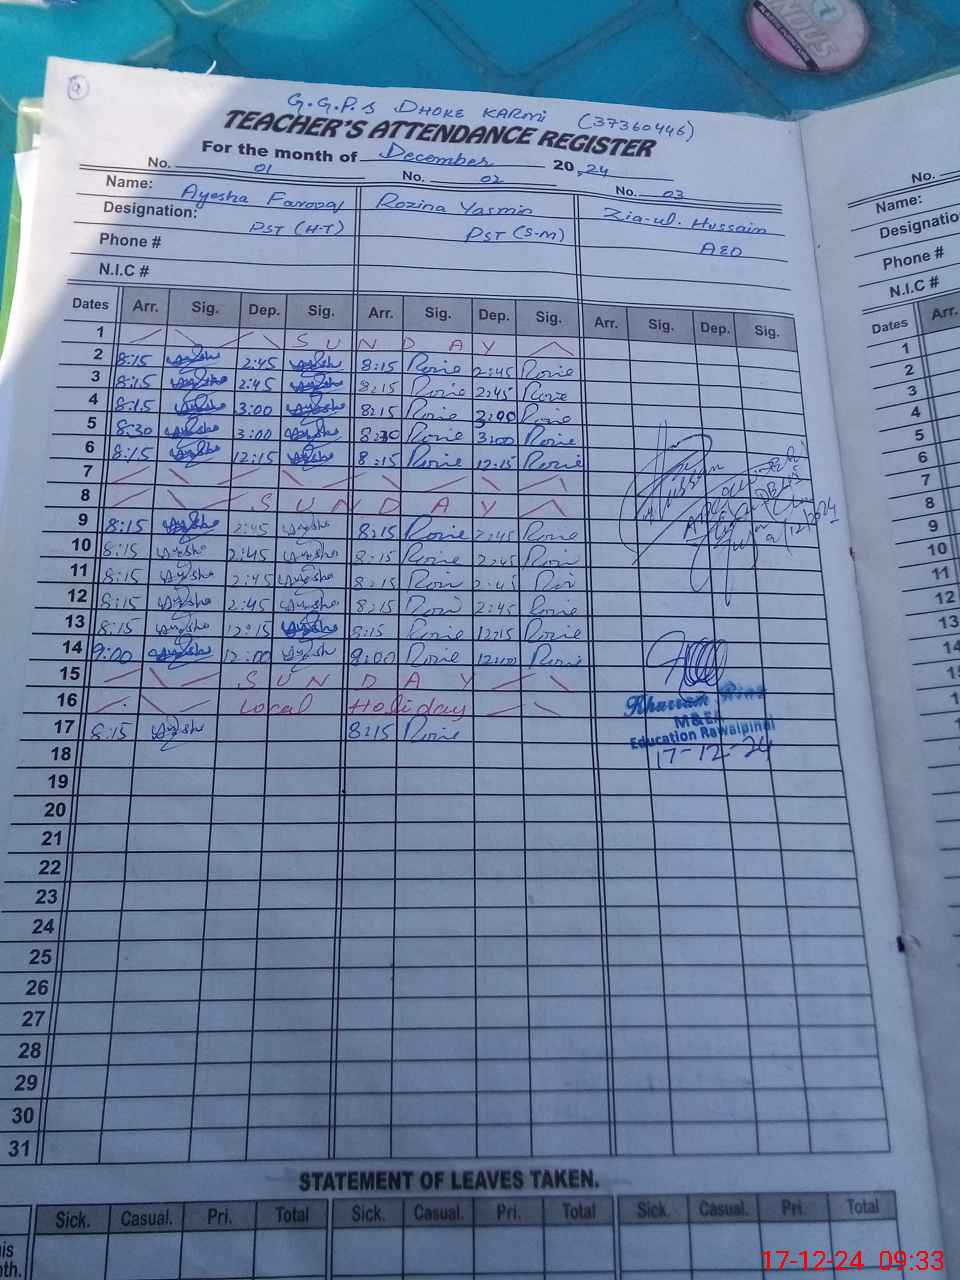 G.G.P.S DHOKE KARMI (37360446)
TEACHER'S ATTENDANCE REGISTER
For the month of December 20 24
No. 01 No. 02 No. 03
Name: Ayesha Farooq Rozina Yasmin Zia-ul-Hussain
Designation: PST (H-T) PST (S-M) AEO
Phone #
N.I.C #
Dates Arr. Sig. Dep. Sig. Arr. Sig. Dep. Sig. Arr. Sig. Dep. Sig.
1 SUNDAY
2 8:15 Ayesha 2:45 Ayesha 8:15 Rozie 2:45 Rozie
3 8:15 Ayesha 2:45 Ayesha 8:15 Rozie 2:45 Rozie
4 8:15 Ayesha 3:00 Ayesha 8:15 Rozie 3:00 Rozie
5 8:30 Ayesha 3:00 Ayesha 8:30 Rozie 3:00 Rozie
6 8:15 Ayesha 12:15 Ayesha 8:15 Rozie 12:15 Rozie
7
8 SUNDAY
9 8:15 Ayesha 2:45 Ayesha 8:15 Rozie 2:45 Rozie
10 8:15 Ayesha 2:45 Ayesha 8:15 Rozie 2:45 Rozie
11 8:15 Ayesha 2:45 Ayesha 8:15 2:45
12 8:15 Ayesha 2:45 Ayesha 8:15 2:45 Rozie
13 8:15 Ayesha 12:15 Ayesha 8:15 Rozie 12:15 Rozie
14 9:00 Ayesha 12:00 Ayesha 9:00 Rozie 12:00 Rozie
15 SUNDAY
16 Local Holiday
17 8:15 Ayesha 8:15 Rozie
Khurram Riaz
M&EA
Education Rawalpindi
17-12-24
18
19
20
21
22
23
24
25
26
27
28
29
30
31
STATEMENT OF LEAVES TAKEN.
Sick. Casual. Pri. Total Sick. Casual. Pri. Total Sick. Casual. Pri. Total
No.
Name:
Designatio
Phone #
N.I.C #
Dates Arr.
1
2
3
4
5
6
7
8
9
10
11
12
13
14
17-12-24 09:33